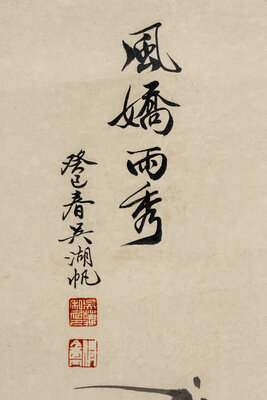 風嬌雨秀
癸巳春吳湖帆